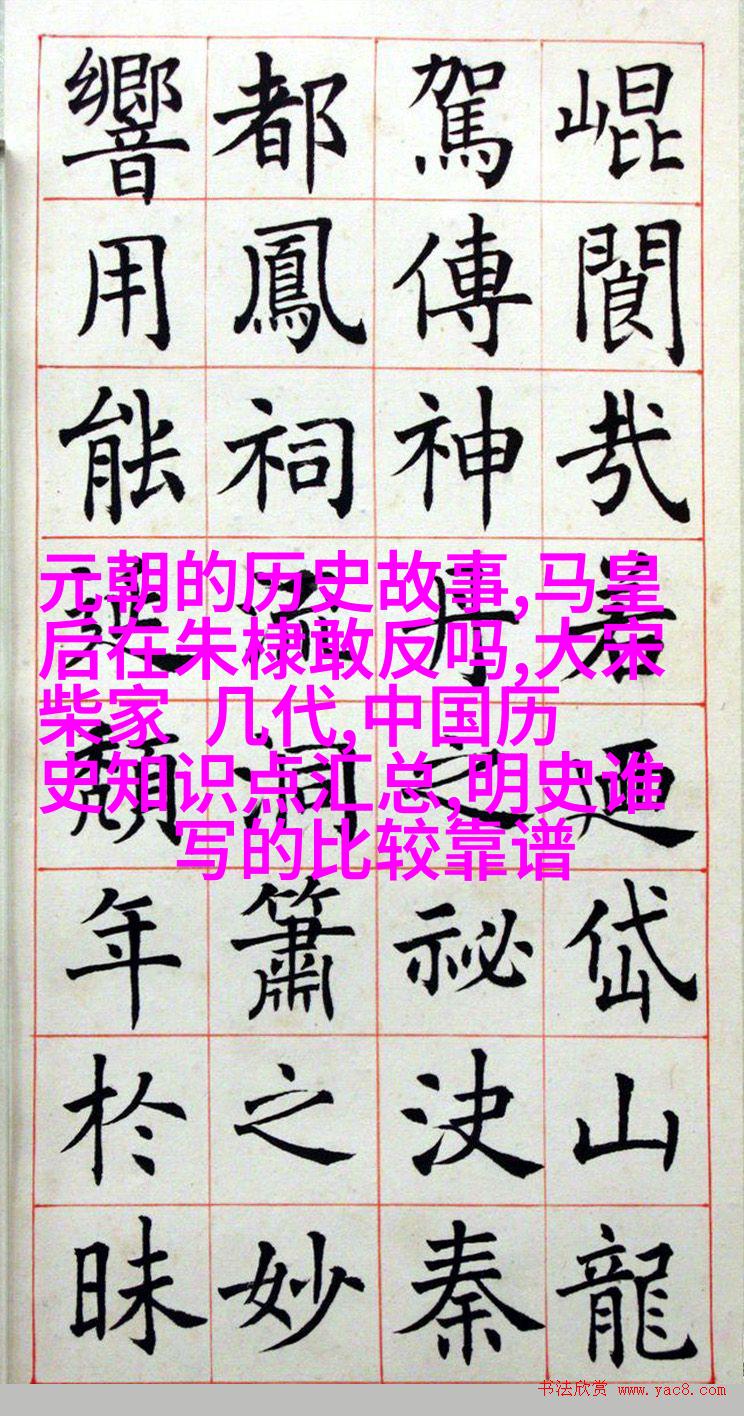 崐閬差岱山龍
駕傳神丹之祕決秦
都鳳祠流洞簫之妙
響用能延頹年於昧
元朝的历史故事,马皇
后在朱棣敢反吗,大宋
柴家 几代,中国历
史知识点汇总,明史谁
写的比较靠谱
书法欣赏 www.yac8.com